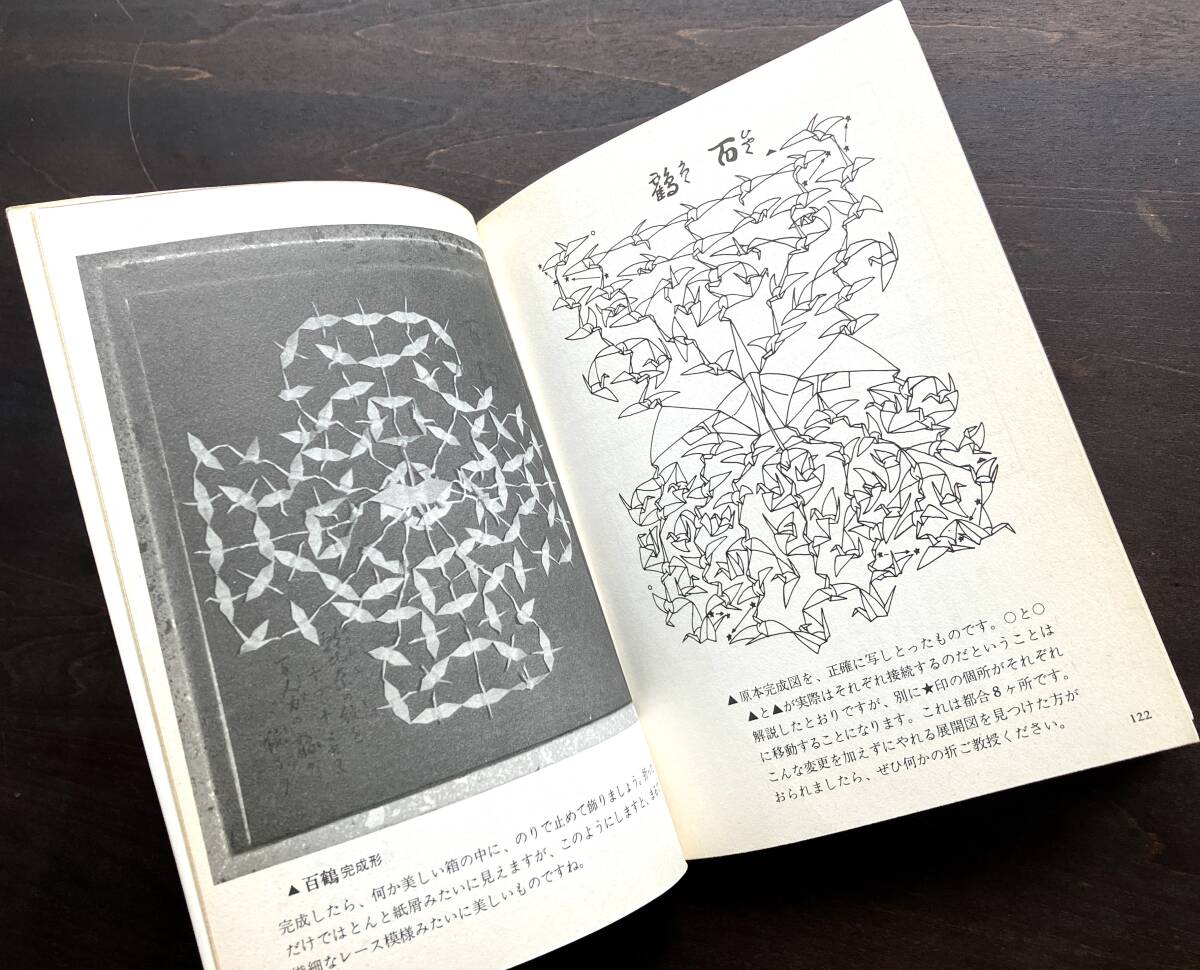 ▲百鶴完成形
完成したら、何か美しい箱の中に、のりで止めて飾りましょう。
だけではとんと紙屑みたいに見えますが、このようにしますと、
繊細なレース模様みたいに美しいものですね。
百鶴
▲原本完成図を、正確に写しとったものです。○と○
▲と▲が実際はそれぞれ接続するのだということは
解説したとおりですが、別に★印の個所がそれぞれ
に移動することになります。これは都合8ヶ所です。
こんな変更を加えずにやれる展開図を見つけた方が
おられましたら、ぜひ何かの折ご教授ください。
122